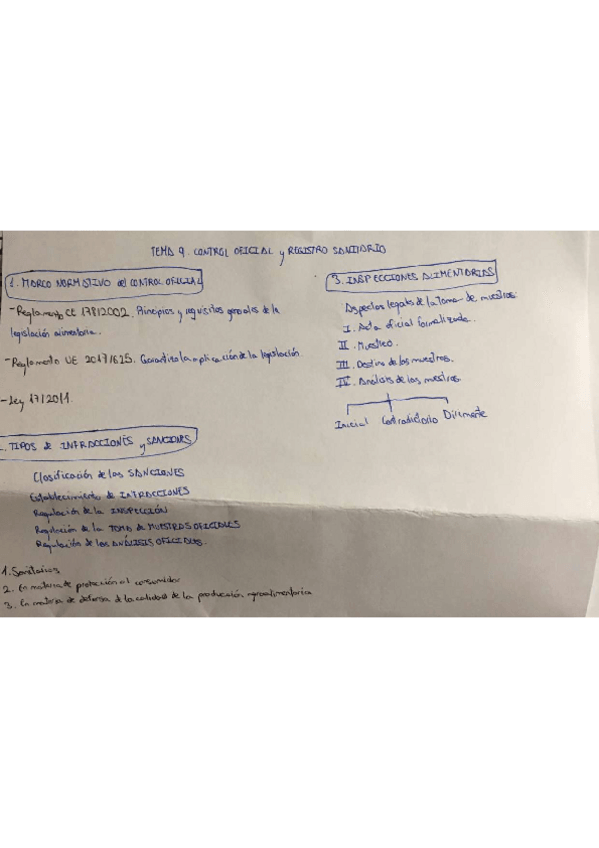 TEMA 9. CONTROL OFICIAL y REGISTRO SANITARIO
1. MARCO NORMATIVO del CONTROL OFICIAL
- Reglamento CE 178/2002. Principios y requisitos generales de la
legislación alimentaria.
- Reglamento UE 2017/625. Garantiza la aplicación de la legislación
- Ley 17/2011.
2. TIPOS de INFRACCIONES y SANCIONES
Clasificación de las SANCIONES
Establecimiento de INFRACCIONES
Regulación de la INSPECCIÓN
Regulación de la TOMA de MUESTRAS OFICIALES
Regulación de los ANÁLISIS OFICIALES.
1. Sanitarias
2. En materia de protección al consumidor
3. En materia de defensa de la calidad de la producción agroalimentaria
3. INSPECCIONES ALIMENTARIAS
Aspectos legales de la Toma de muestras:
I. Acta oficial formalizada.
II. Muestreo.
III. Destino de las muestras.
IV. Análisis de las muestras.
Inicial Contradictorio Dirimente